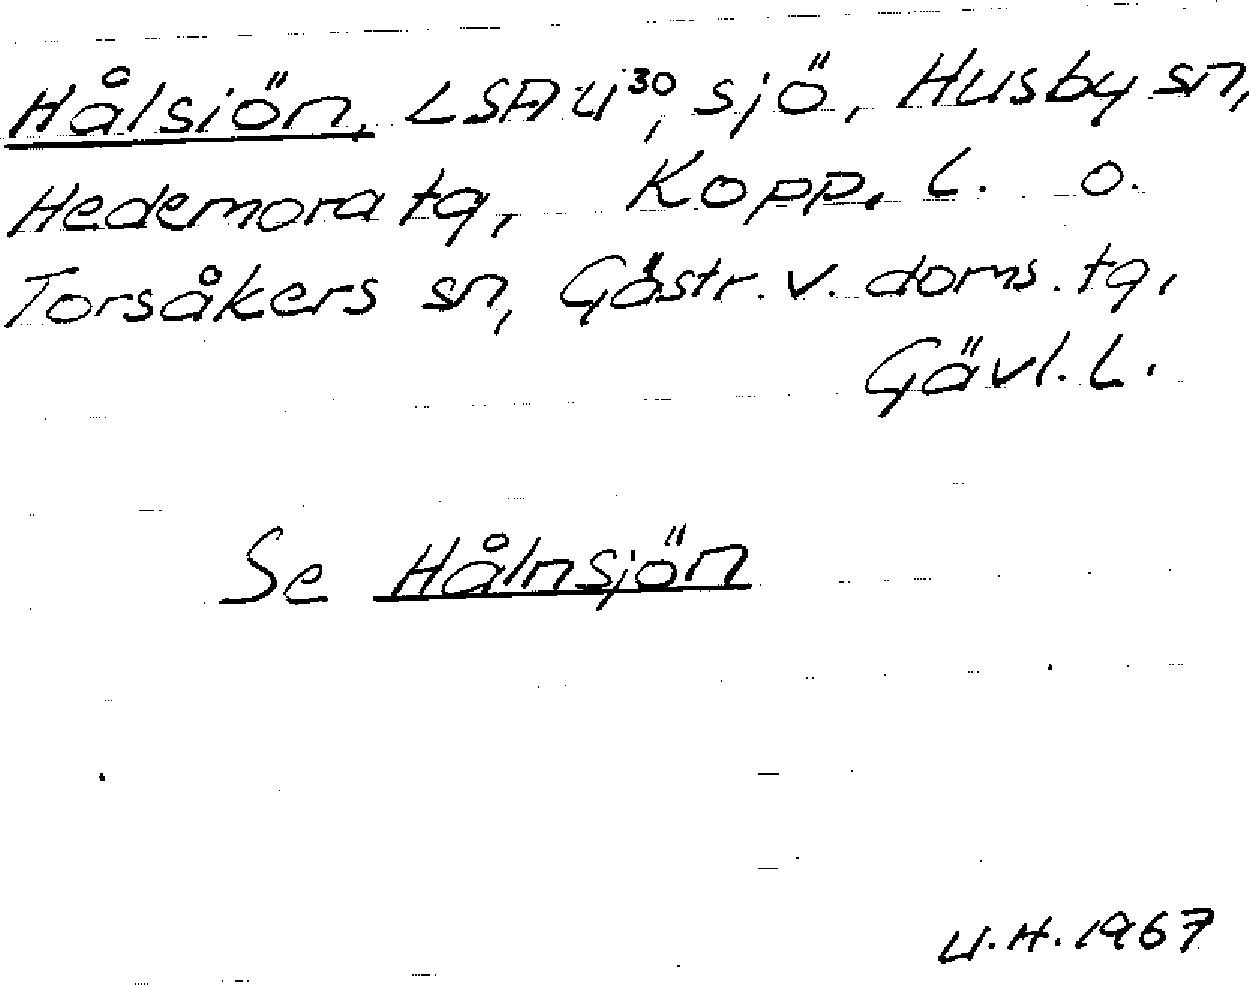 Hålsiön, LSA U³⁰, sjö, Husby sn,
Hedemora tg, Kopp. L. o.
Torsåkers sn, Gästr. v. doms. tg,
Gävl. L.
Se Hålnsjön
U.H. 1967